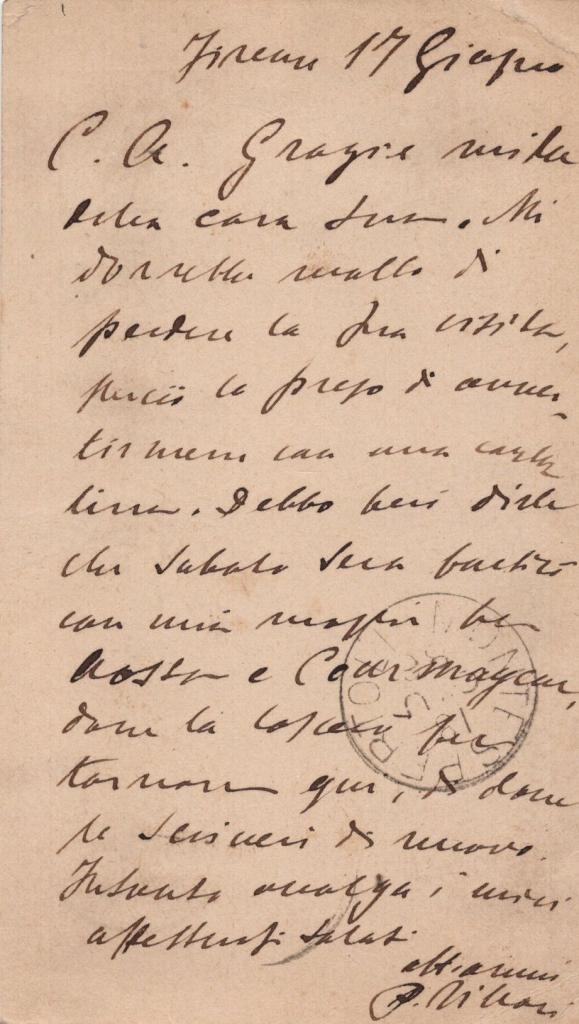 Firenze 17 Giugno
C. A. Grazie mille
della cara sua. Mi
dorrebbe molto di
perdere la sua visita,
perciò la prego di avver-
tirmene con una carto-
lina. Debbo però dirle
che sabato sera partirò
con mia moglie per
Aosta e Courmayeur,
dove la lascerò per
tornare qui, di dove
le scriverò di nuovo.
Intanto accolga i miei
affettuosi saluti
P. Villari
MONTESPERTOLI